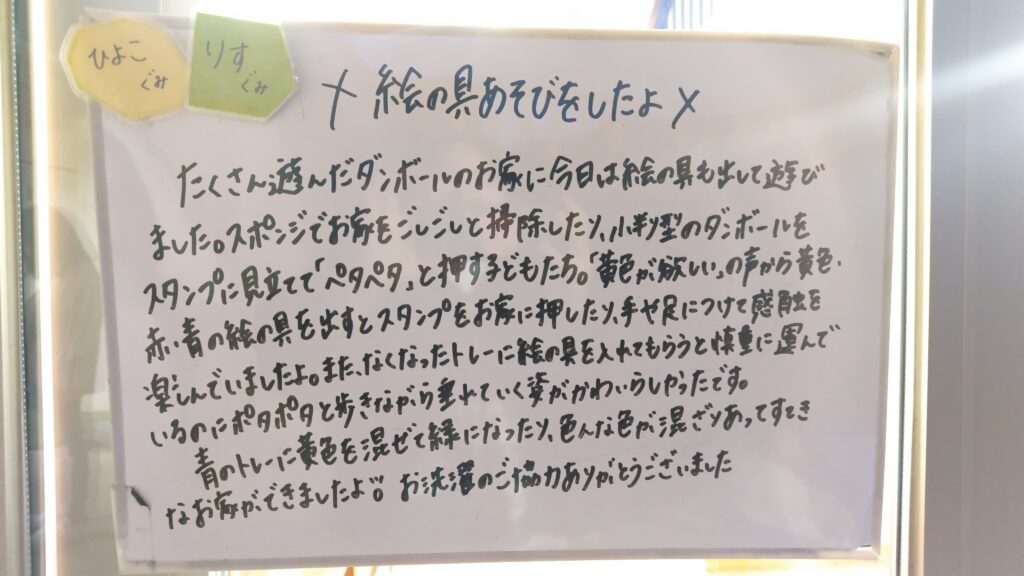 ひよこ
ぐみ
りす
ぐみ
絵の具あそびをしたよ
たくさん遊んだダンボールのお家に今日は絵の具も出して遊び
ました。スポンジでお家をごしごしと掃除したり、小判型のダンボールを
スタンプに見立てて「ペタペタ」と押す子どもたち。「黄色が欲しい」の声から黄色・
赤・青の絵の具を出すとスタンプをお家に押したり、手や足につけて感触を
楽しんでいましたよ。また、なくなったトレーに絵の具を入れてもらうと慎重に運んで
いるのにポタポタと歩きながら垂れていく姿がかわいらしかったです。
青のトレーに黄色を混ぜて緑になったり、色んな色が混ざりあってすてき
なお家ができましたよ。お洗濯のご協力ありがとうございました